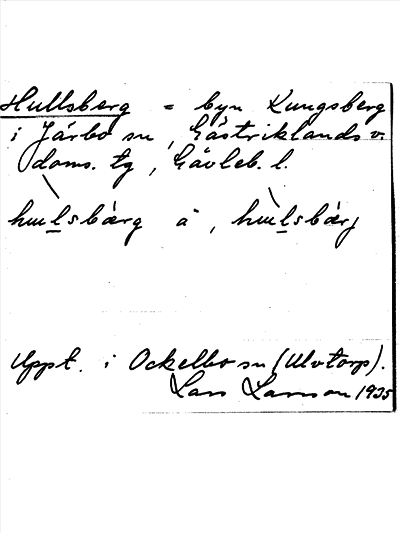 Hullsberg = byn Kungsberg
i Järbo sn, Gästriklands v.
doms. tg, Gävleb. l.
hɯlsbærg a, hɯlsbærj
Uppt. i Ockelbo sn (Ulvtorp).
Lars Larsson 1935